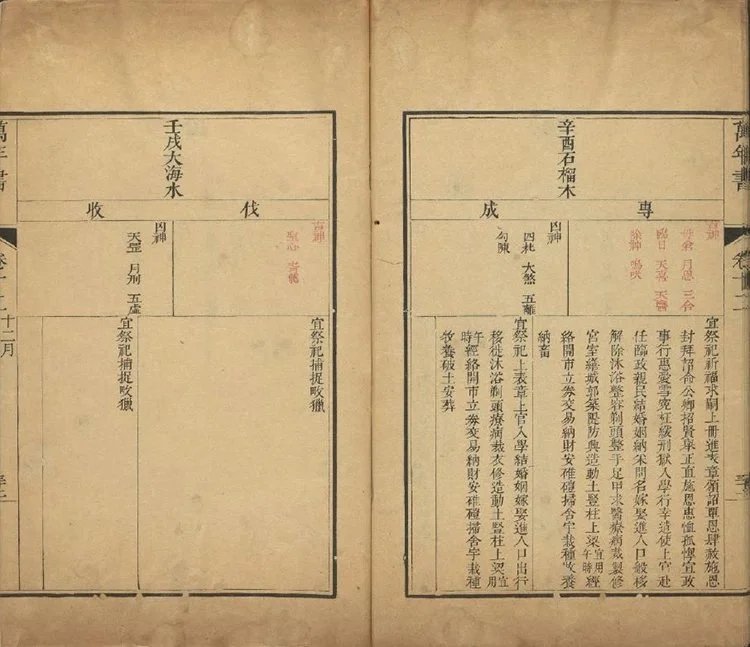 萬年書
卷十二
辛酉石榴木
專
成
吉神
母倉 月恩 三合
臨日 天喜 天醫
除神 鳴吠
凶神
四耗 大煞 五離
勾陳
宜祭祀祈福求嗣上冊進表章頒詔覃恩肆赦施恩
封拜詔命公卿招賢舉正直施恩惠恤孤惸宣政
事行惠愛雪冤枉緩刑獄入學行幸遣使上官赴
任臨政親民結婚姻納采問名嫁娶進人口般移
解除沐浴整容剃頭整手足甲求醫療病裁製修
宮室繕城郭築隄防興造動土豎柱上梁宜用午時經
絡開市立券交易納財安碓磑掃舍宇栽種牧養
納畜
宜祭祀上表章上官入學結婚姻嫁娶進人口出行
移徙沐浴剃頭療病裁衣修造動土豎柱上梁宜用
午時經絡開市立券交易納財安碓磑掃舍宇栽種
牧養破土安葬
壬戌大海水
伐
收
吉神
聖心 青龍
凶神
天罡 月刑 五虛
宜祭祀捕捉畋獵
宜祭祀捕捉畋獵
萬年書
卷十二
十二月